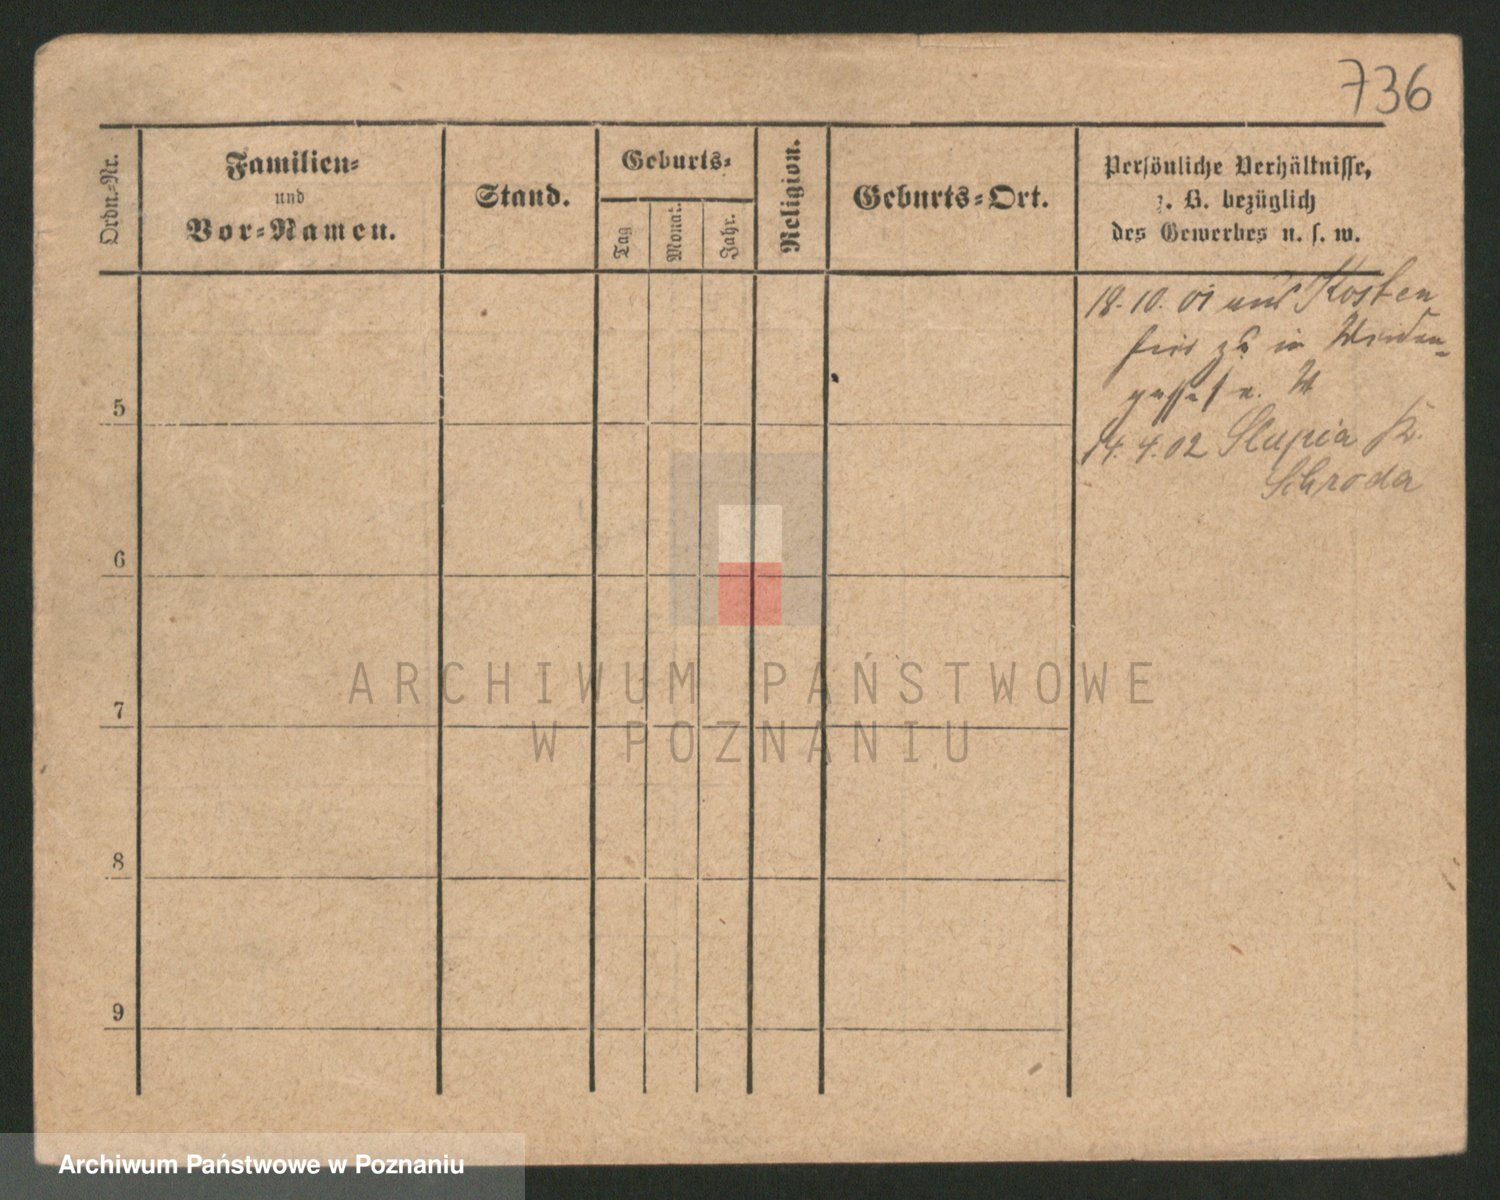 736
Ordn.-Nr.
Familien-
und
Vor-Namen.
Stand.
Geburts-
Tag
Monat.
Jahr.
Religion.
Geburts-Ort.
Persönliche Verhältnisse,
z. B. bezüglich
des Gewerbes u. s. w.
18. 10. 01 aus Kosten
hier zu in
14. 4. 02 Slupia Kr.
Schroda
5
6
7
8
9
ARCHIWUM PAŃSTWOWE
W POZNANIU
Archiwum Państwowe w Poznaniu